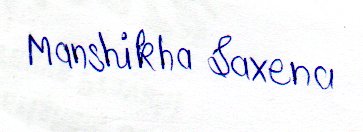 Manshikha Saxena